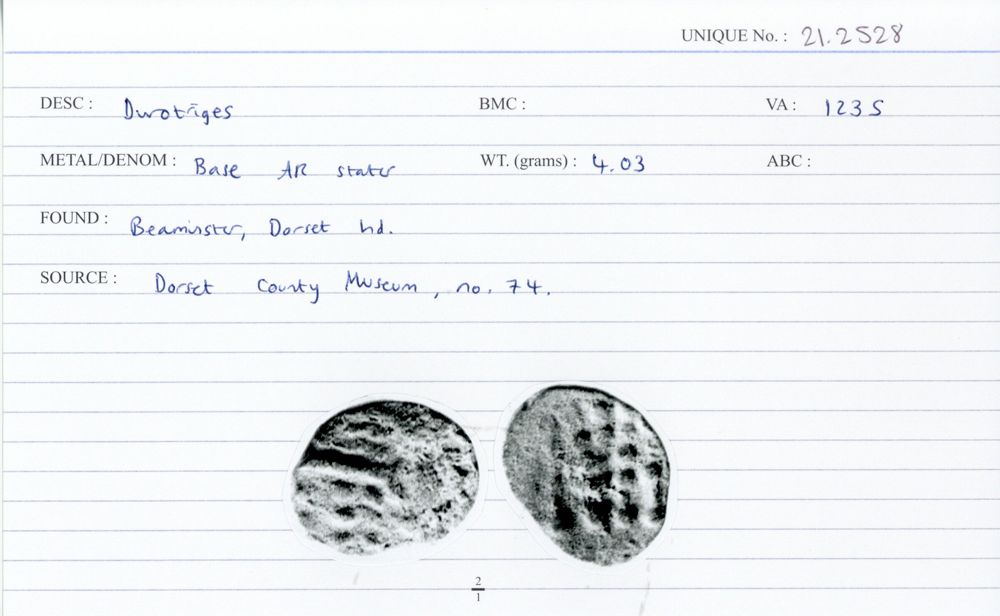 UNIQUE No. : 21.2528
DESC : Durotriges BMC : VA : 1235
METAL/DENOM : Base AR stater WT. (grams) : 4.03 ABC :
FOUND : Beaminster, Dorset hd.
SOURCE : Dorset County Museum, no. 74.
2
1